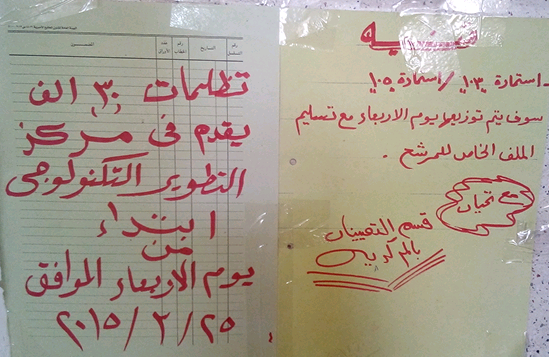 تنبيه
- استمارة ١٠٣ / استمارة ١٠٥
سوف يتم توزيعها يوم الاربعاء مع تسليم
الملف الخاص للمرشح .
مع تحيات
قسم التعيينات
بالمركزية
رقم المسلسل
التاريخ
رقم الخطاب
عدد الأوراق
المضمون
تظلمات ٣٠ الف
يقدم فى مركز
التطوير التكنولوجى
ابتداء
من
يوم الاربعاء الموافق
٢٠١٥/٢/٢٥